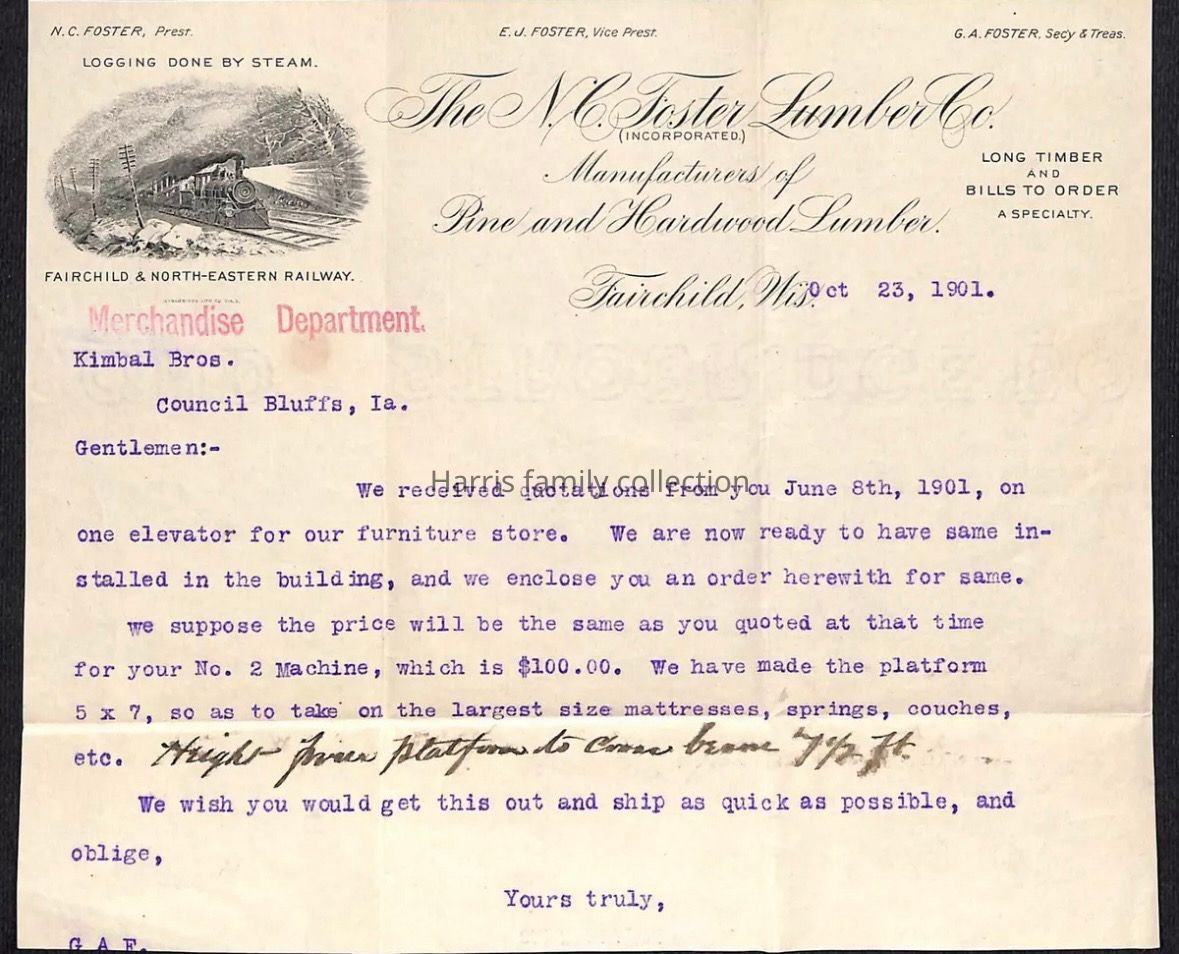 N.C. FOSTER, Prest.
E.J. FOSTER, Vice Prest.
G.A. FOSTER, Secy & Treas.
LOGGING DONE BY STEAM.
The N.C. Foster Lumber Co.
(INCORPORATED.)
Manufacturers of
Pine and Hardwood Lumber.
LONG TIMBER
AND
BILLS TO ORDER
A SPECIALTY.
FAIRCHILD & NORTH-EASTERN RAILWAY.
Fairchild, Wis. Oct 23, 1901.
Merchandise Department.
Kimbal Bros.
Council Bluffs, Ia.
Gentlemen:-
Harris family collection
We received quotations from you June 8th, 1901, on
one elevator for our furniture store. We are now ready to have same in-
stalled in the building, and we enclose you an order herewith for same.
we suppose the price will be the same as you quoted at that time
for your No. 2 Machine, which is $100.00. We have made the platform
5 x 7, so as to take on the largest size mattresses, springs, couches,
etc. Height from platform to cross beam 7 1/2 ft
We wish you would get this out and ship as quick as possible, and
oblige,
Yours truly,
G A F.